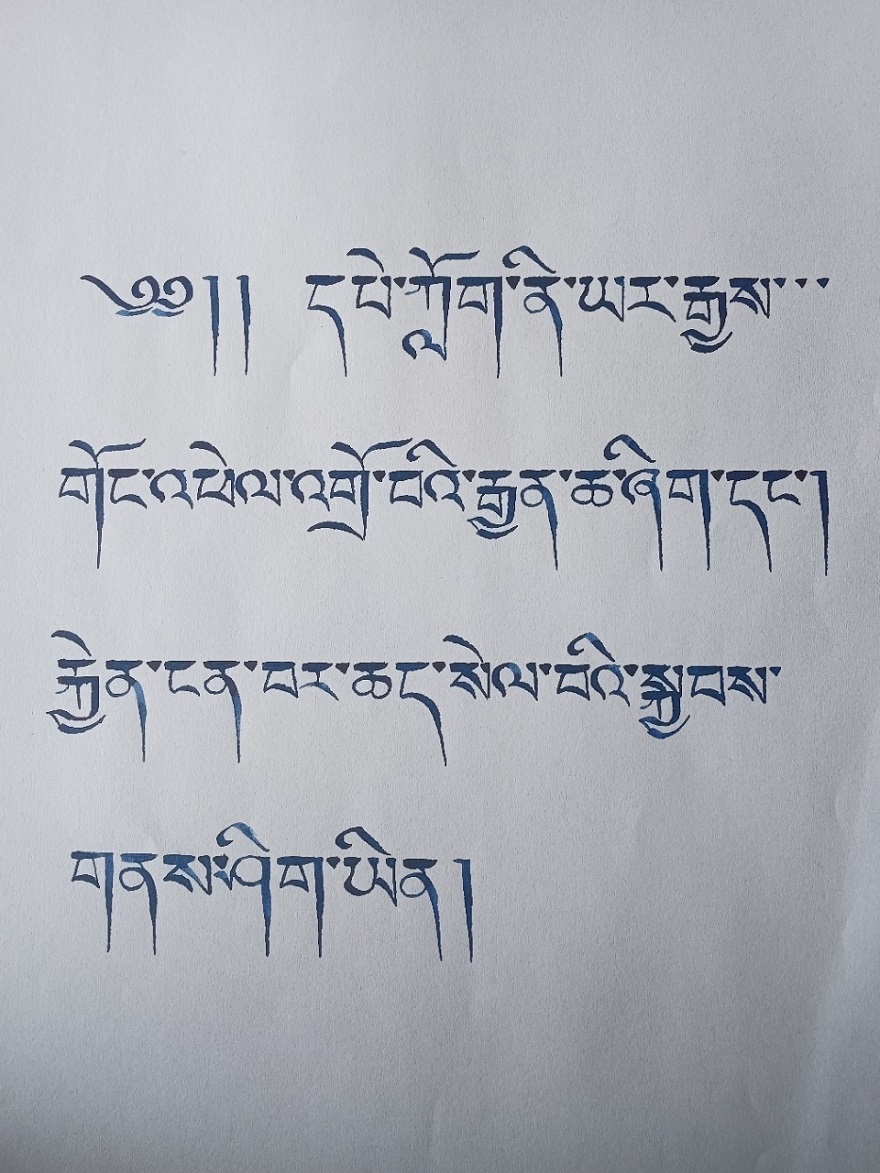 ༄༅།། དཔེ་ཀློག་ནི་ཡར་རྒྱས་་་
གོང་འཕེལ་འགྲོ་བའི་རྒྱན་ཆ་ཞིག་དང་།
རྐྱེན་ངན་བར་ཆད་སེལ་བའི་སྐྱབས་
གནས་ཤིག་ཡིན།